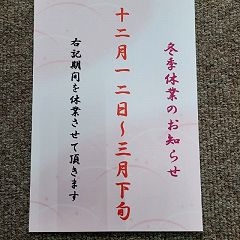 冬季休業のお知らせ
十二月一二日～三月下旬
右記期間を休業させて頂きます